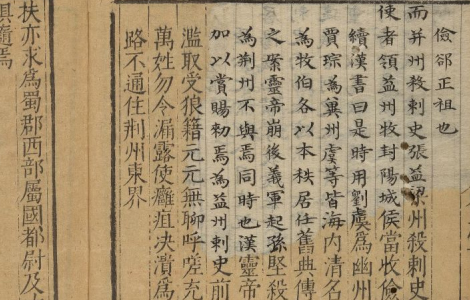 儉郤正祖也
而并州殺刺史張益梁州殺刺史
使者領益州牧封陽城侯當收儉
續漢書曰是時用劉虞爲幽州
賈琮爲冀州虞等皆海内清名
爲牧伯各以本秩居任舊典傳
之案靈帝崩後義軍起孫堅殺
爲荆州不與焉同時也漢靈帝
加以賞賜勑焉爲益州刺史前
濫取受狼籍元元無聊呼嗟充
萬姓勿令漏露使癰疽決潰爲
路不通住荆州東界
扶亦求爲蜀郡西部屬國都尉及
俱隨焉